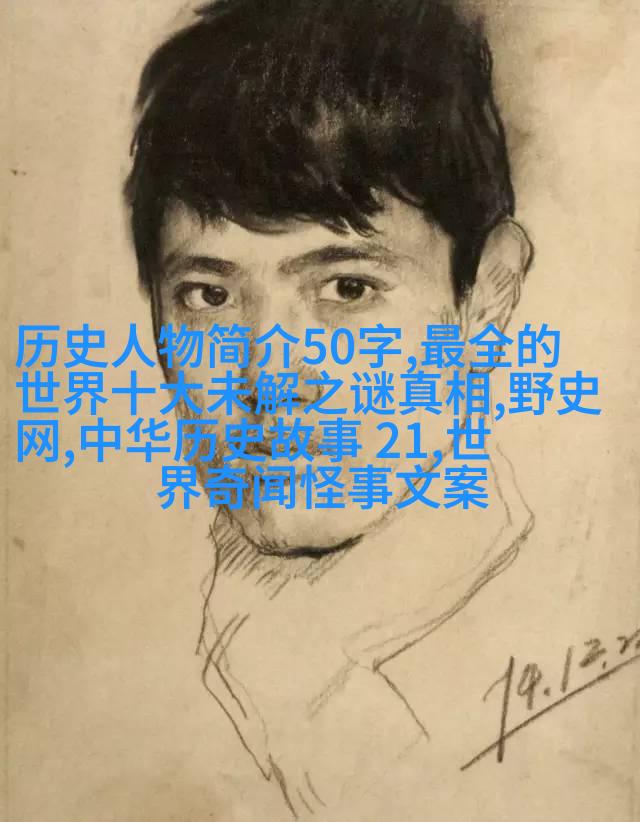 历史人物简介50字,最全的
世界十大未解之谜真相,野史
网,中华历史故事 21,世
界奇闻怪事文案